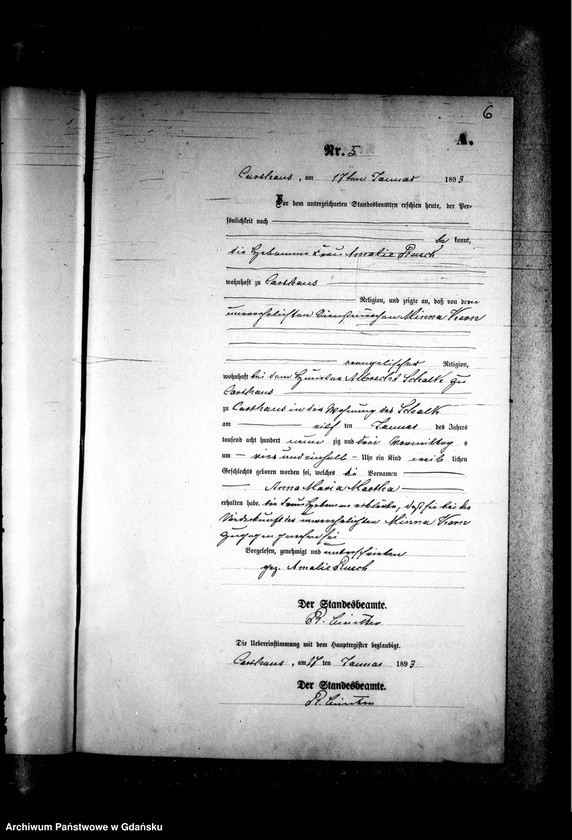 6
A.
Nr. 5
Carthaus, am 17ten Januar 1893
Vor dem unterzeichneten Standesbeamten erschien heute, der Per-
sönlichkeit nach
be kannt,
die Hebamme Frau Amalie Rusch
wohnhaft zu Carthaus
Religion, und zeigte an, daß von der
unverehelichten Dienstmädchen Minna Kern
evangelischer Religion,
wohnhaft bei dem Albrecht Schalk zu
Carthaus
zu Carthaus in der Wohnung des Schalk
am elf ten Januar des Jahres
tausend acht hundert neun zig und drei Vormittag s
um vier und einhalb Uhr ein Kind weib lichen
Geschlechts geboren worden sei, welches die Vornamen
Anna Maria Martha
erhalten habe. die Frau Hebamme erklärte, daß sie bei der
Niederkunft der unverehelichten Minna Kern
zugegen gewesen sei
Vorgelesen, genehmigt und unterschrieben
gez. Amalie Rusch
Der Standesbeamte.
Die Uebereinstimmung mit dem Hauptregister beglaubigt.
Carthaus, am 17 ten Januar 1893
Der Standesbeamte.
Archiwum Państwowe w Gdańsku